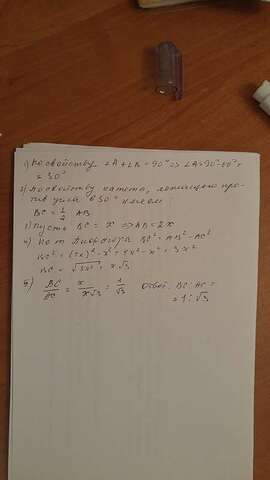 1) По свойству ∠A + ∠B = 90° => ∠A = 90° - 60° =
= 30°
2) По свойству катета, лежащего про-
тив угла в 30° имеем
BC = 1/2 AB
3) Пусть BC = x => AB = 2x
4) По т. Пифагора BC² = AB² - AC²
BC² = (2x)² - x² = 4x² - x² = 3x²
BC = √3x² = x√3
5) BC/AC = x/x√3 = 1/√3 Ответ: BC : AC =
= 1 : √3